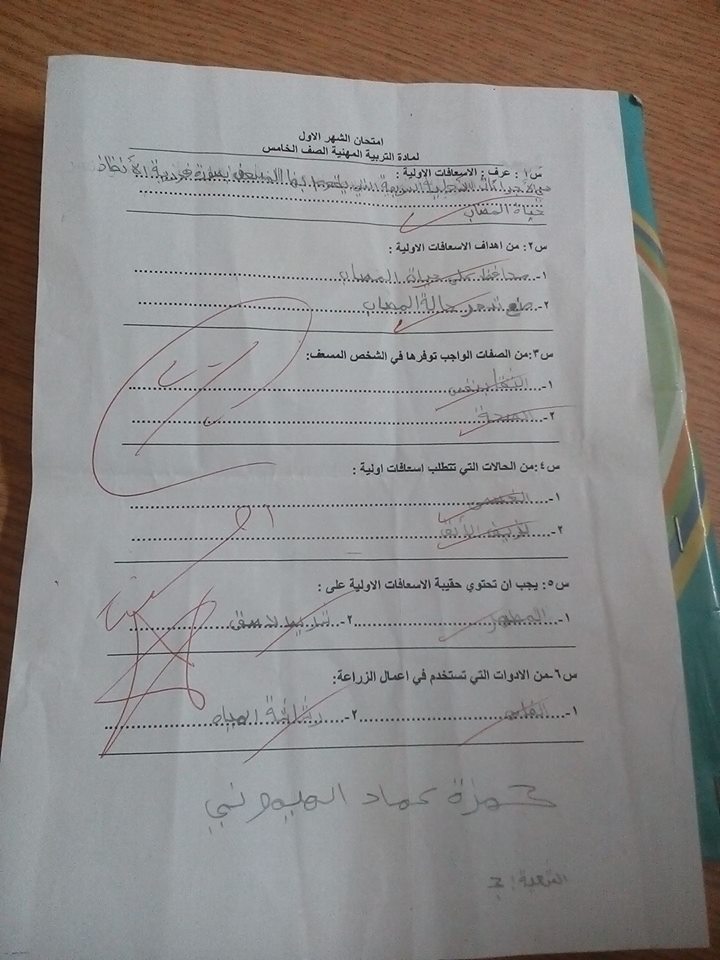 امتحان الشهر الاول
لمادة التربية المهنية الصف الخامس
س١ : عرف : الاسعافات الاولية :
هي الاجراءات السريعة التي يقوم بها المسعف بصورة
حياة المصاب
س٢: من اهداف الاسعافات الاولية :
١- محافظ على حياة المصاب
٢- منع تدهور حالة المصاب
س٣:من الصفات الواجب توفرها في الشخص المسعف:
١- الثقة بنفس
٢- الصحة
س٤:من الحالات التي تتطلب اسعافات اولية :
١-
٢- نزيف الأنف
س٥: يجب ان تحتوي حقيبة الاسعافات الاولية على :
١- المطهر ٢- شريط لاصق
س٦-من الادوات التي تستخدم في اعمال الزراعة:
١- الفأس ٢- رشاشة المياه
احسنت
حمزة عماد
الشعبة: ج